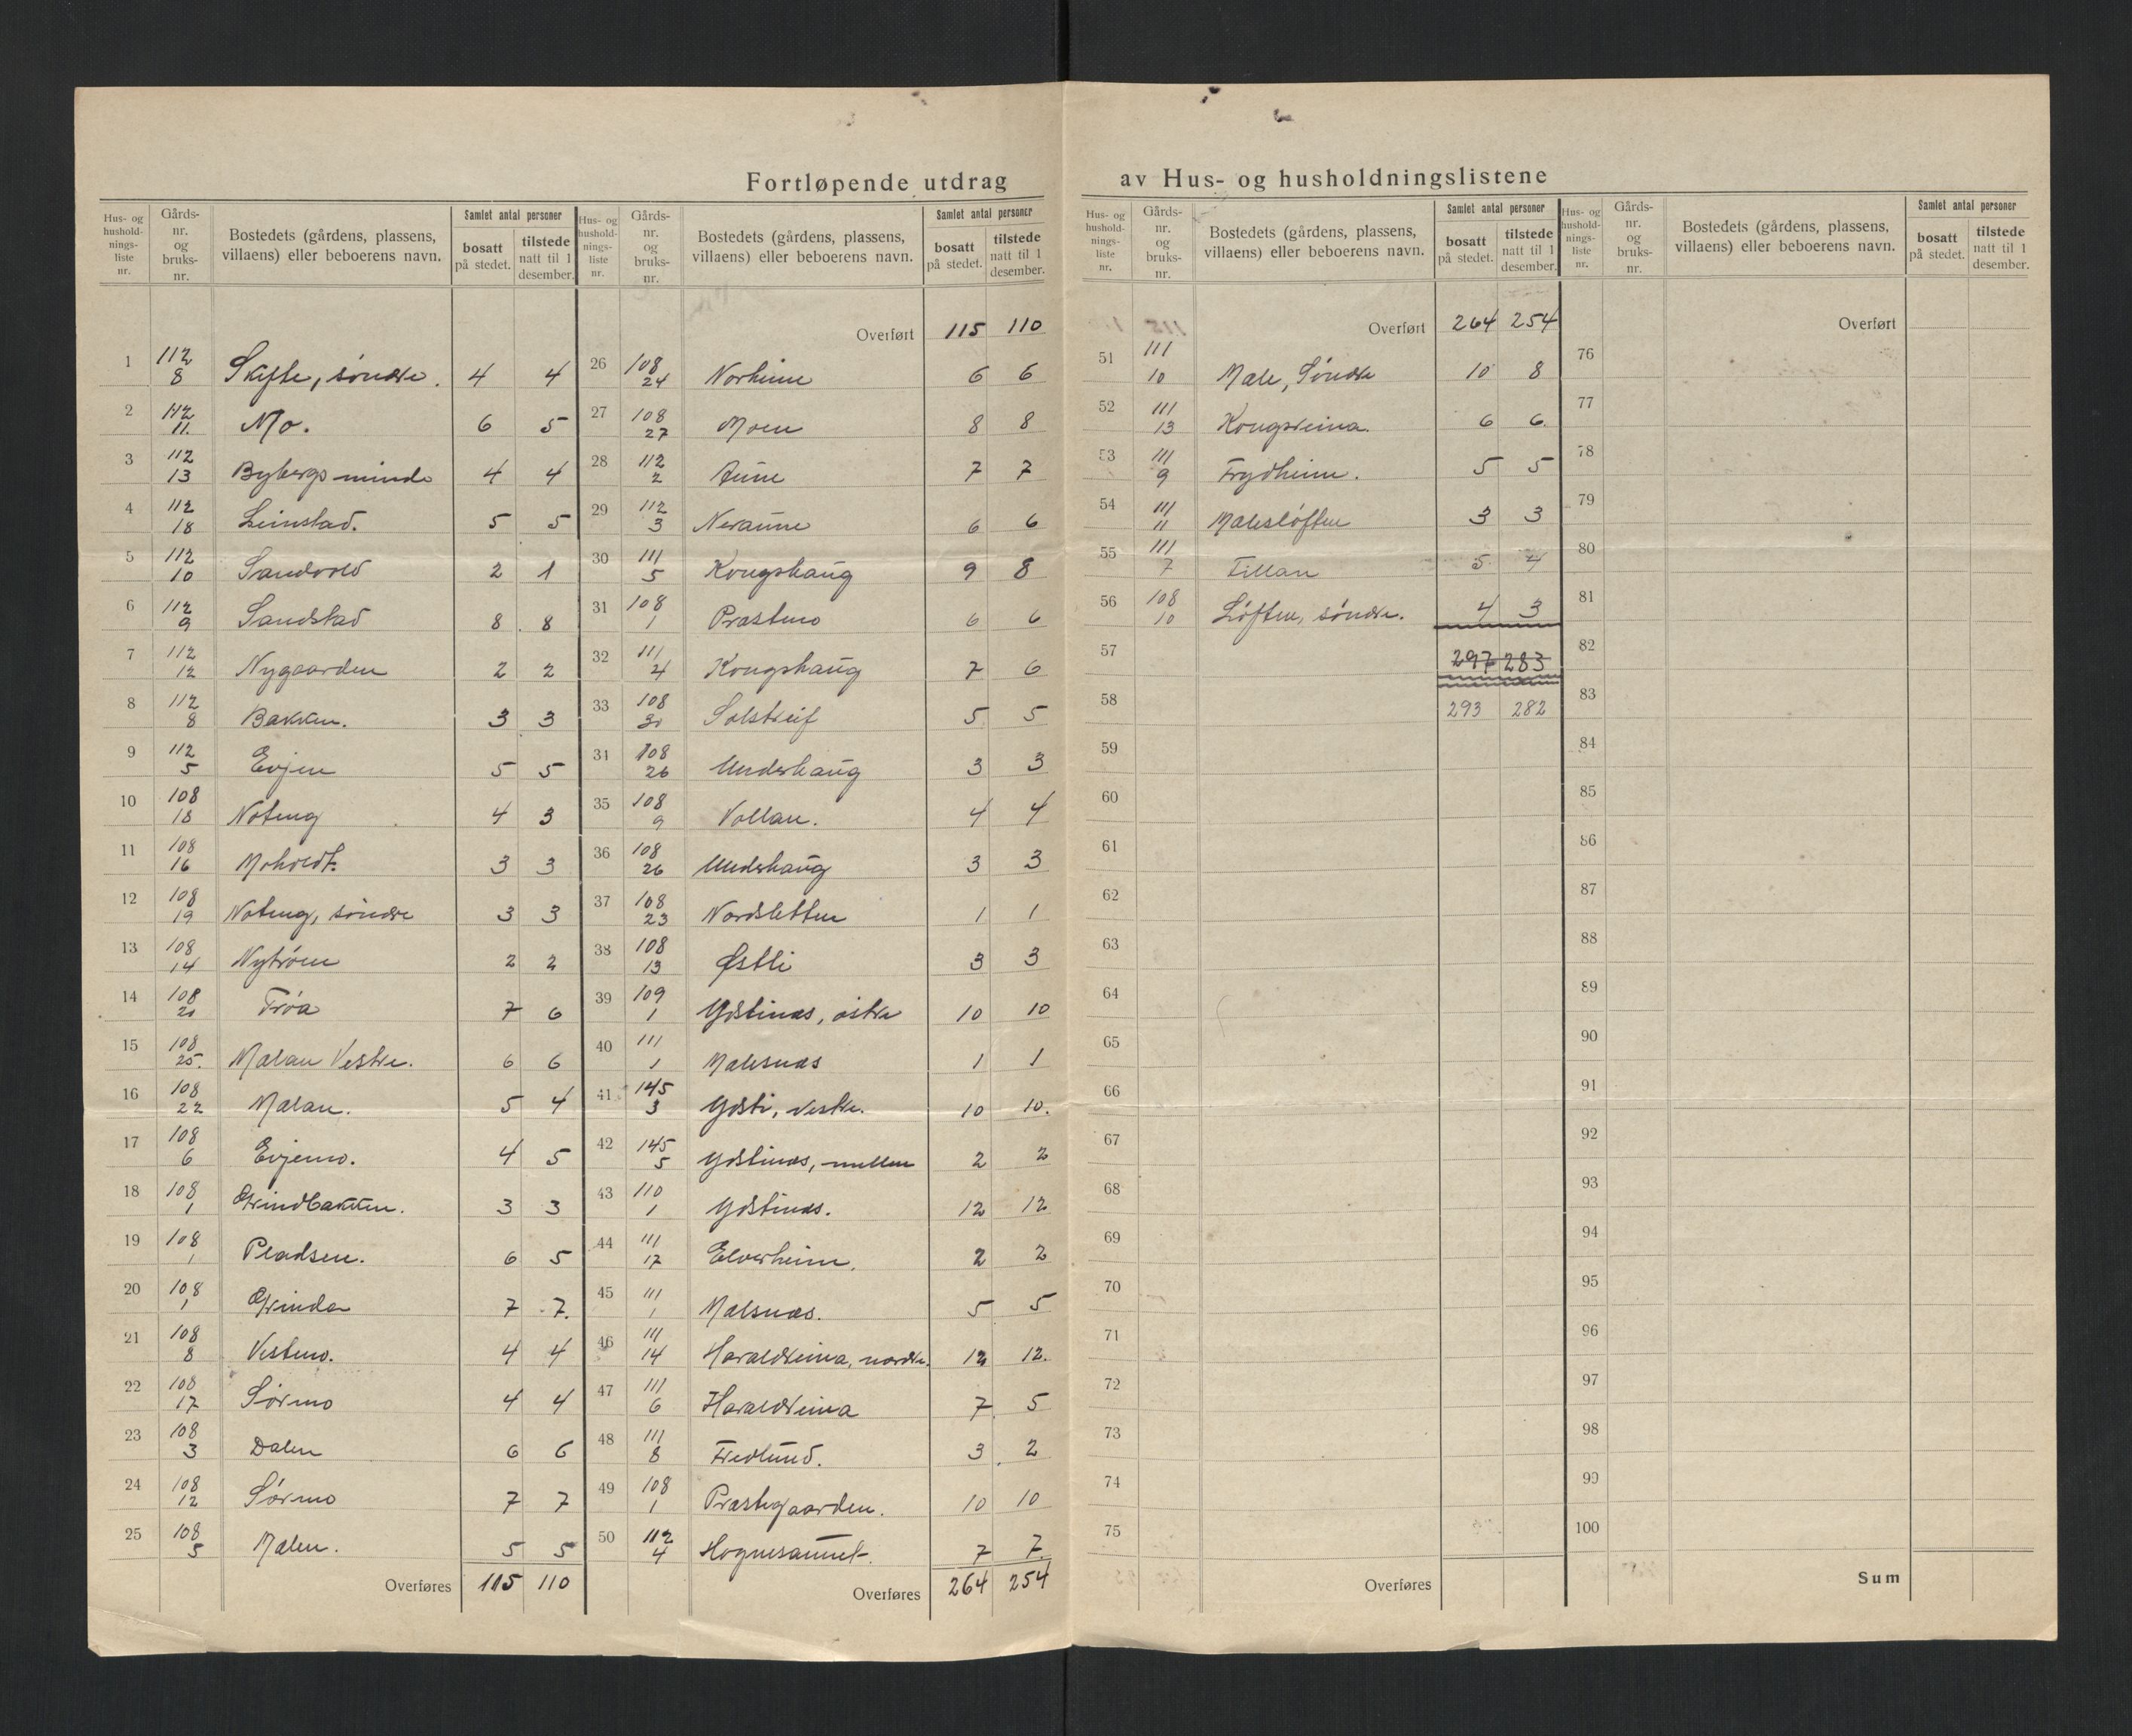 Fortløpende utdrag av Hus- og husholdningslistene
Hus- og hushold-nings-liste nr. Gårds-nr. og bruks-nr. Bostedets (gårdens, plassens, villaens) eller beboerens navn. Samlet antal personer bosatt på stedet. tilstede natt til 1 desember.
1 112 8 Skifte, söndre. 4 4
2 112 11. Mo. 6 5
3 112 13 Bybergsminde 4 4
4 112 18 Leinstad. 5 5
5 112 10 Sandvold 2 1
6 112 9 Sandstad 8 8
7 112 12 Nygaarden 2 2
8 112 8 Bakken. 3 3
9 112 5 Evjen 5 5
10 108 18 Noteng 4 3
11 108 16 Moholdt. 3 3
12 108 19 Noteng, söndre 3 3
13 108 14 Nytröen 2 2
14 108 21 Tröa 7 6
15 108 25. Mælan Vestre. 6 6
16 108 22 Mælan. 5 4
17 108 6 Evjemo. 4 5
18 108 1 Grindbakken. 3 3
19 108 1 Pladsen. 6 5
20 108 1 Grinda 7 7.
21 108 8 Vestmo. 4 4
22 108 17 Sörmo 4 4
23 108 3 Dalen 6 6
24 108 12 Sörmo 7 7
25 108 5 Mælen. 5 5
Overføres 115 110
Hus- og hushold-nings-liste nr. Gårds-nr. og bruks-nr. Bostedets (gårdens, plassens, villaens) eller beboerens navn. Samlet antal personer bosatt på stedet. tilstede natt til 1 desember.
Overført 115 110
26 108 24 Norheim 6 6
27 108 27 Moen 8 8
28 112 2 Aune 7 7
29 112 3 Neraune 6 6
30 111 5 Kongshaug 9 8
31 108 1 Præstmo 6 6
32 111 4 Kongshaug 7 6
33 108 Solstreif 5 5
34 108 26 Underhaug 3 3
35 108 9 Vollan. 4 4
36 108 26 Underhaug 3 3
37 108 23 Nordsletten 1 1
38 108 13 Østli 3 3
39 109 1 Ydstinæs, östre 10 10
40 111 1 Malesnæs 1 1
41 145 3 Ydsti, vestre. 10 10.
42 145 5 Ydstinæs, mellem 2 2
43 110 1 Ydstinæs. 12 12
44 111 17 Elverheim. 2 2
45 111 1 Malsnæs. 5 5
46 111 14 Haraldreina, nordre. 12 12.
47 111 6 Haraldreina 7 5
48 111 8 Fredlund. 3 2
49 108 1 Præstegaarden. 10 10
50 112 4 Hognesaunet. 7 7
Overføres 264 254
Hus- og hushold-nings-liste nr. Gårds-nr. og bruks-nr. Bostedets (gårdens, plassens, villaens) eller beboerens navn. Samlet antal personer bosatt på stedet. tilstede natt til 1 desember.
Overført 264 254
51 111 10 Male, Söndre 10 8
52 111 13 Kongsreina. 6 6.
53 111 9 Frydheim. 5 5
54 111 11 Malesløften 3 3
55 111 7 Tillan 5 4
56 108 10 Löften, söndre. 4 3
57 297 283
58 293 282
59
60
61
62
63
64
65
66
67
68
69
70
71
72
73
74
75
Overføres
Hus- og hushold-nings-liste nr. Gårds-nr. og bruks-nr. Bostedets (gårdens, plassens, villaens) eller beboerens navn. Samlet antal personer bosatt på stedet. tilstede natt til 1 desember.
Overført
76
77
78
79
80
81
82
83
84
85
86
87
88
89
90
91
92
93
94
95
96
97
98
99
100
Sum